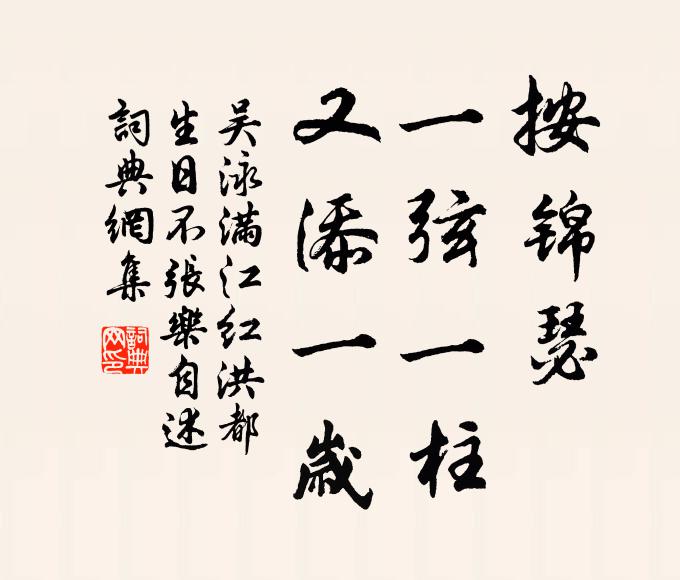 按锦瑟
一弦一柱
又添一歲
吴泳满江红洪都
生日不張樂自述
詞典網集
詞典网印